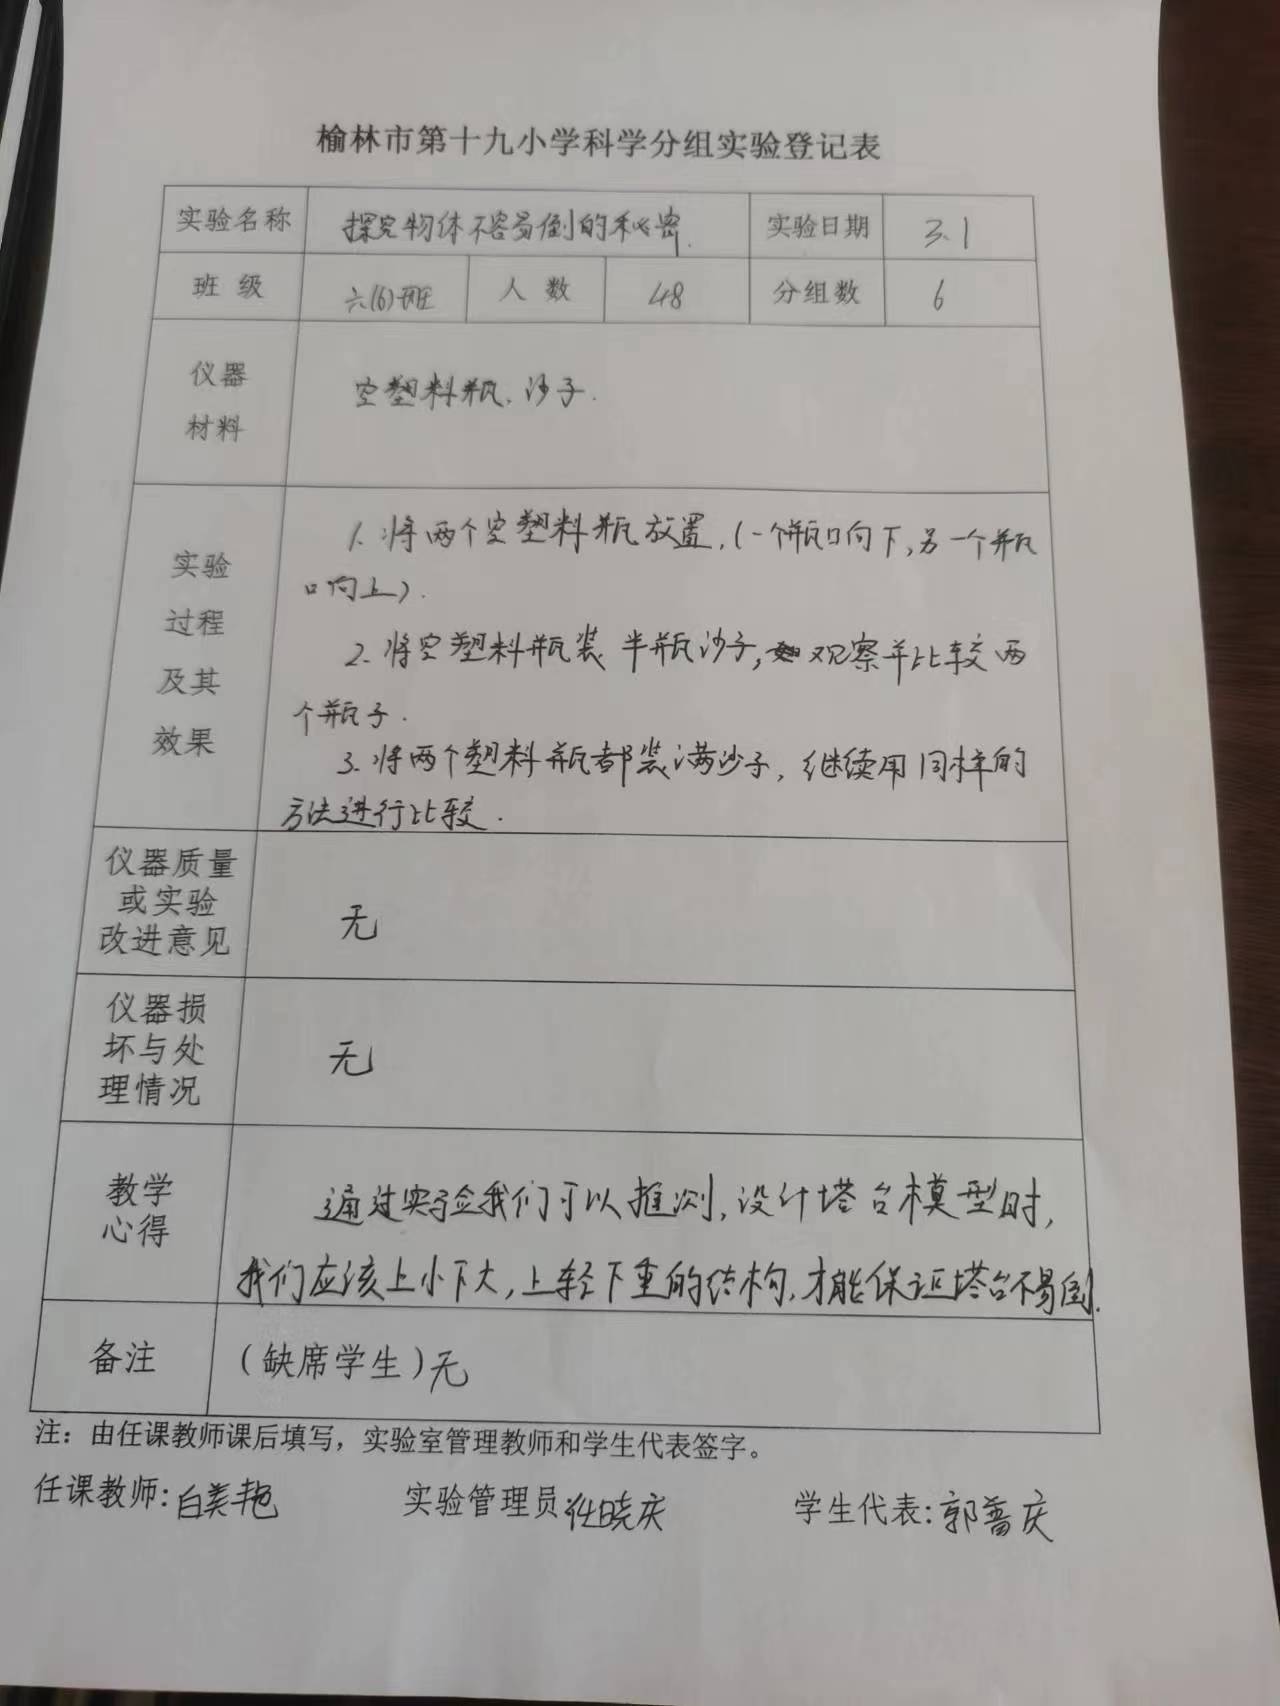 榆林市第十九小学科学分组实验登记表
实验名称 探究物体不容易倒的秘密. 实验日期 3.1
班 级 六(6)班 人 数 48 分组数 6
仪器
材料
空塑料瓶、沙子.
实验
过程
及其
效果
1. 将两个空塑料瓶放置,(一个瓶口向下,另一个瓶
口向上).
2. 将空塑料瓶装半瓶沙子,观察并比较两
个瓶子.
3. 将两个塑料瓶都装满沙子,继续用同样的
方法进行比较.
仪器质量
或实验
改进意见
无
仪器损
坏与处
理情况
无
教学
心得
通过实验我们可以推测,设计塔台模型时,
我们应该上小下大,上轻下重的结构,才能保证塔台不易倒.
备注 (缺席学生)无
注：由任课教师课后填写，实验室管理教师和学生代表签字。
任课教师:白美艳 实验管理员:任晓庆 学生代表:郭蕾庆